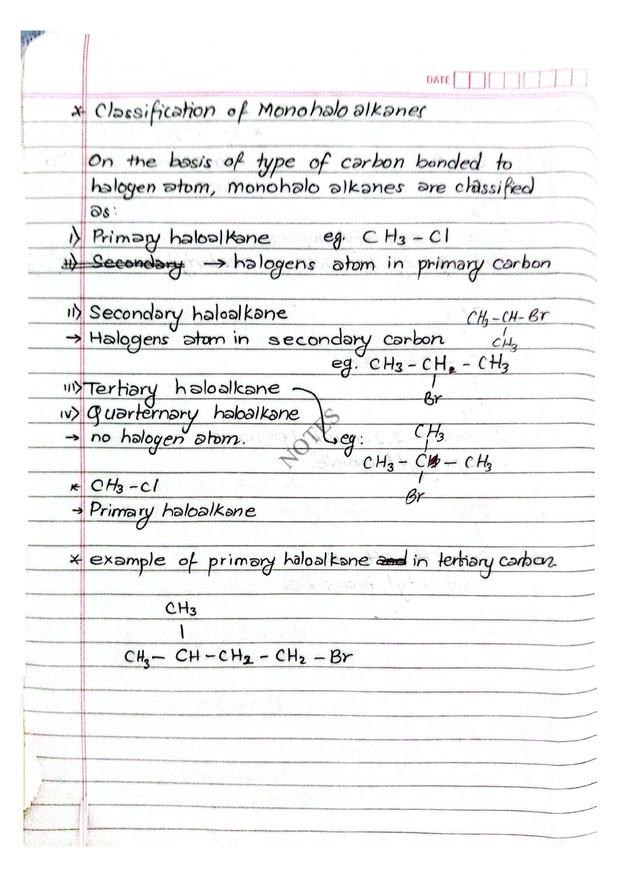 DATE
* Classification of Monohalo alkanes
On the basis of type of carbon bonded to
halogen atom, monohalo alkanes are classified
as:
i) Primary haloalkane eg. CH3 - Cl
ii) Secondary → halogens atom in primary carbon
ii) Secondary haloalkane CH3 - CH - Br
→ Halogens atom in secondary carbon CH3
eg. CH3 - CH2 - CH3
iii) Tertiary haloalkane Br
iv) Quarternary haloalkane CH3
→ no halogen atom. eg:
CH3 - C - CH3
* CH3 - Cl Br
→ Primary haloalkane
NOTES
* example of primary haloalkane and in tertiary carbon
CH3
CH3 - CH - CH2 - CH2 - Br